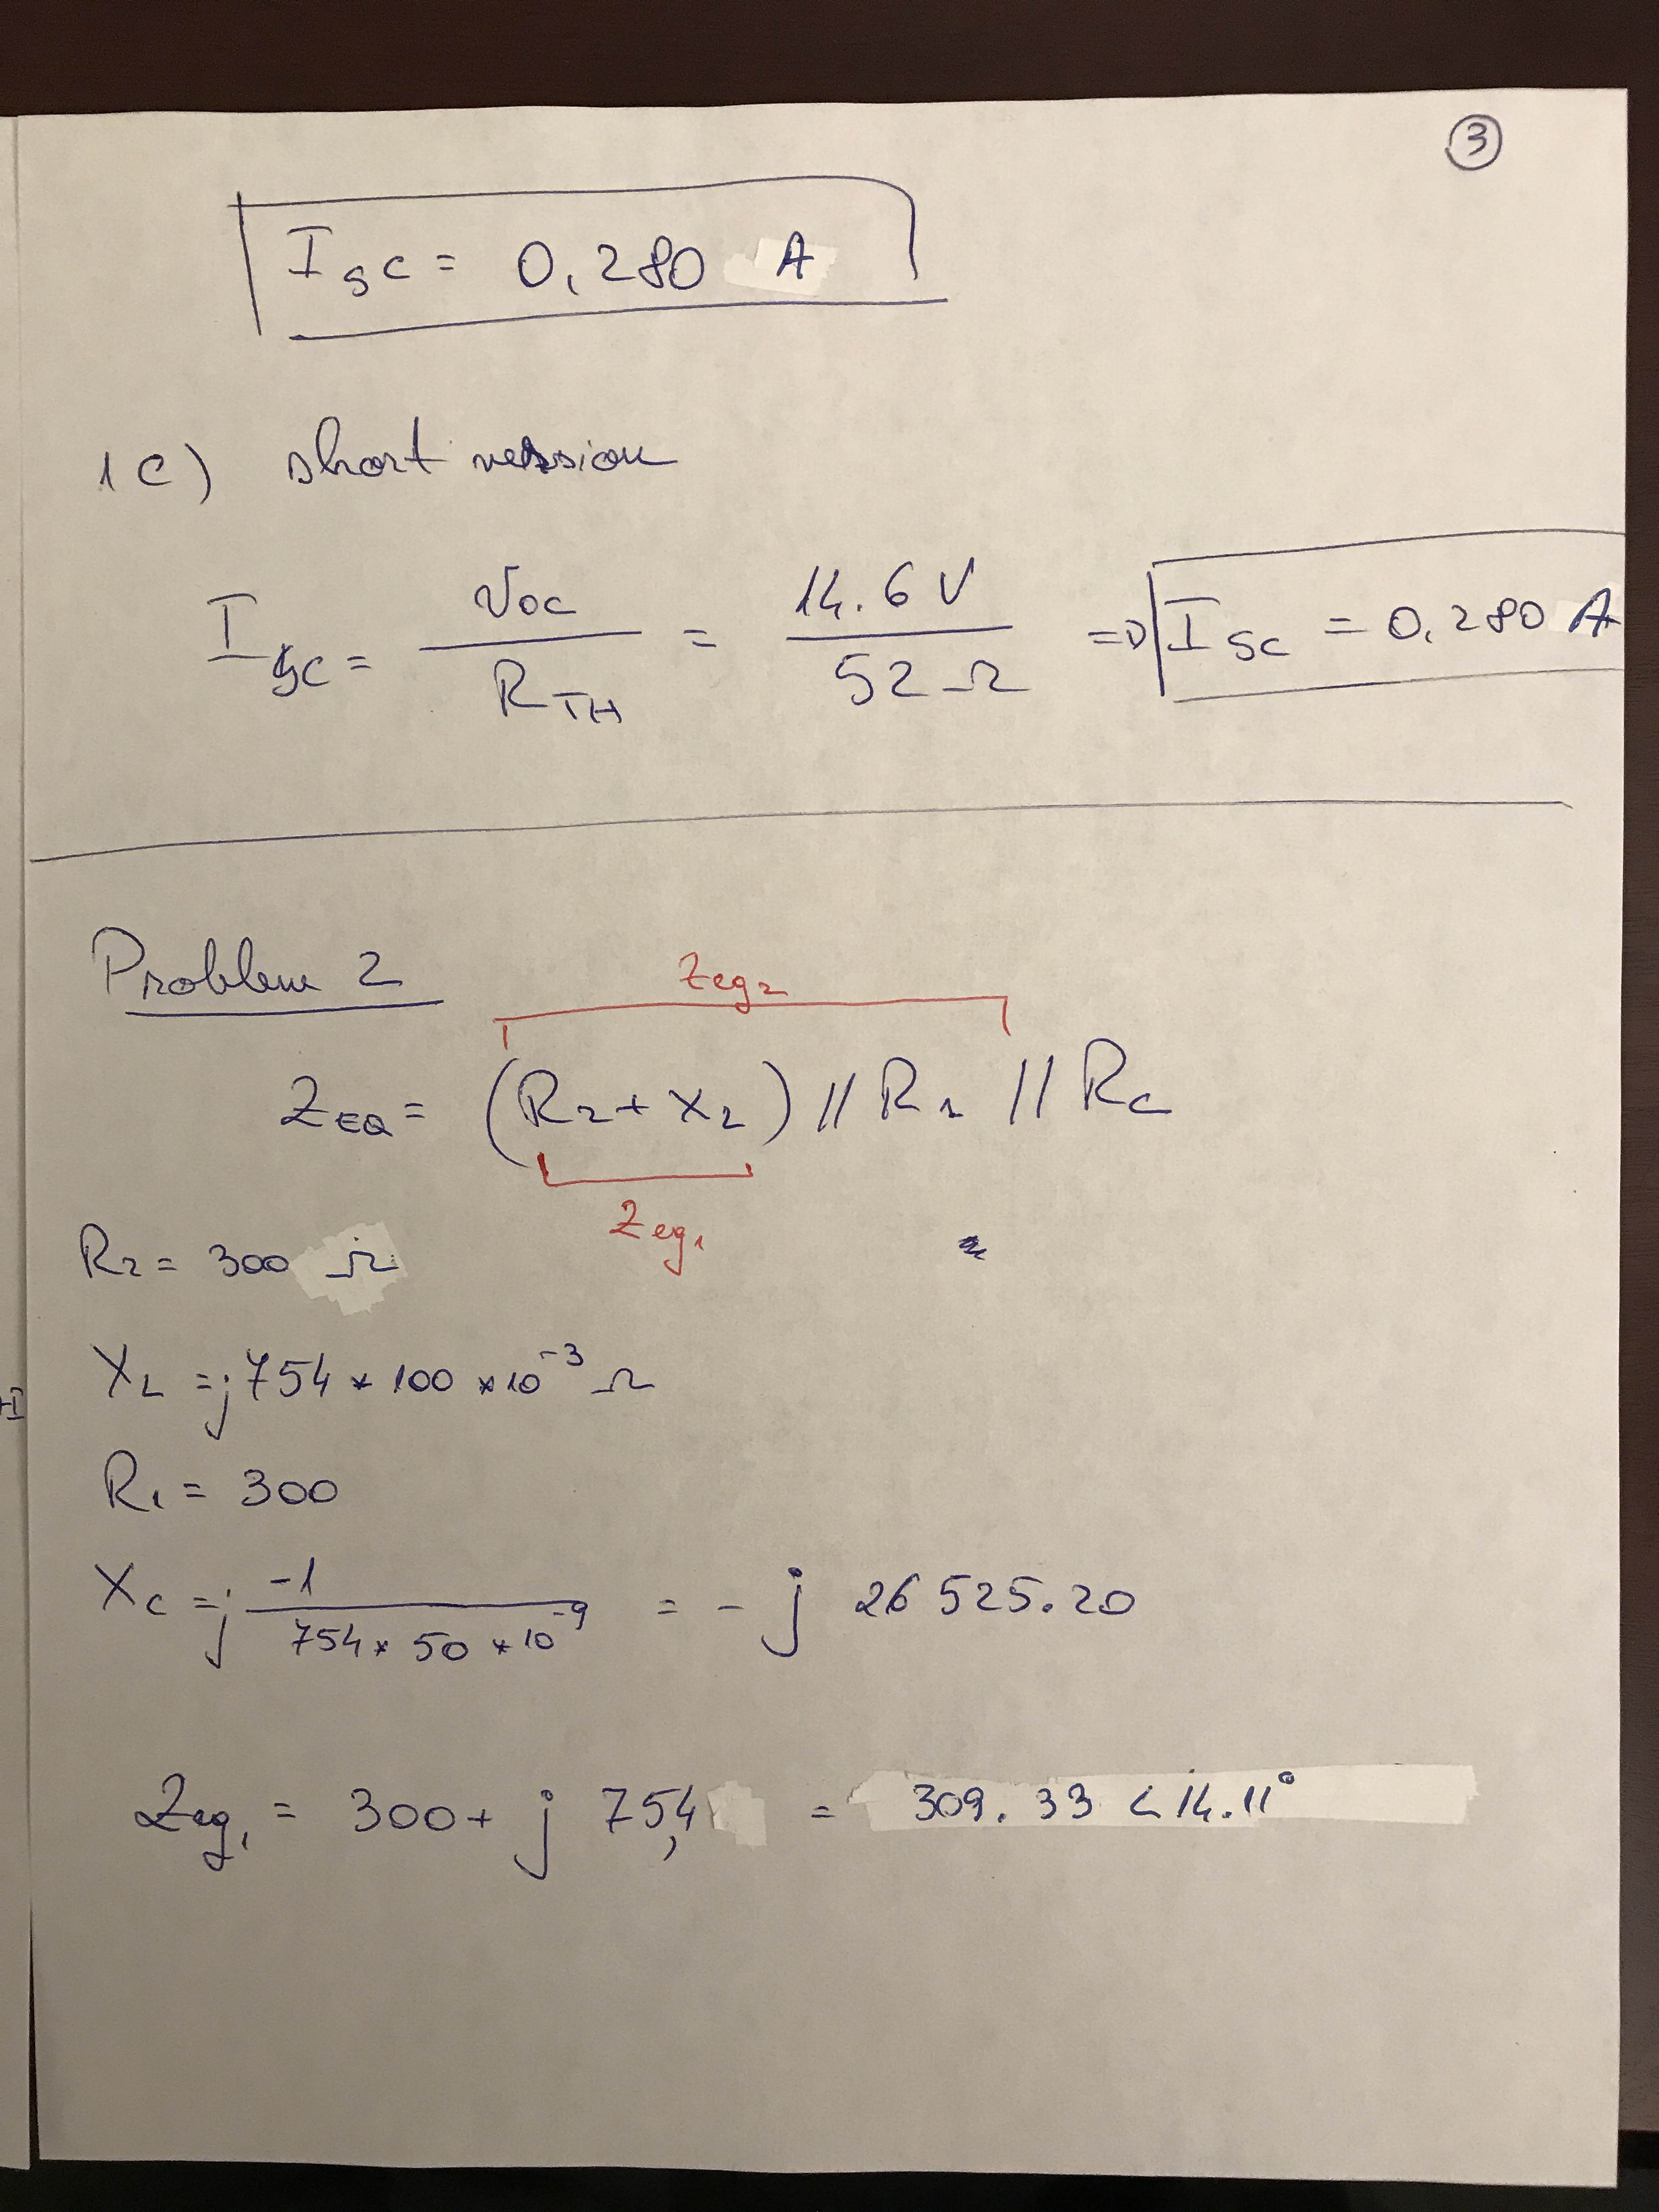 3
I SC = 0,280 A
1C) short version
I SC = Voc / R TH = 14.6 V / 52 Ω => I SC = 0,280 A
Problem 2
Zeq2
Z EQ = (R2 + X2) // R1 // Rc
Zeq1
R2 = 300 Ω
XL = j 754 * 100 * 10^-3 Ω
R1 = 300
Xc = j -1 / 754 * 50 * 10^-9 = - j 26 525.20
Zeq1 = 300 + j 75,4 = 309.33 < 14.11°